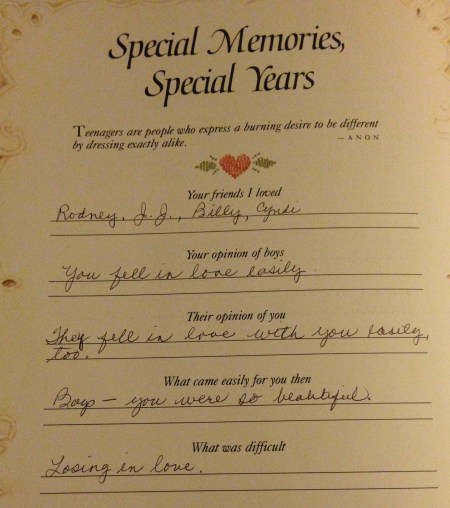 Special Memories,
Special Years
Teenagers are people who express a burning desire to be different
by dressing exactly alike. — ANON
Your friends I loved
Rodney, J.J., Billy, Cyndi
Your opinion of boys
You fell in love easily.
Their opinion of you
They fell in love with you easily,
too.
What came easily for you then
Boys — you were so beautiful.
What was difficult
Losing in love.